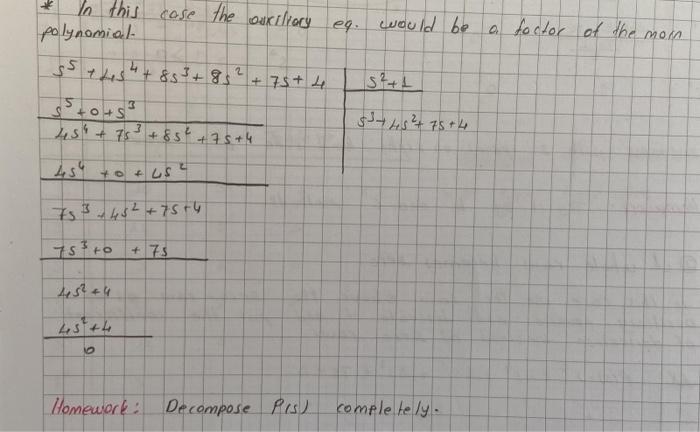 * In this case the auxiliary eq. would be a factor of the main
polynomial.
s⁵ + 4s⁴ + 8s³ + 8s² + 7s + 4 | s² + 1
s⁵ + 0 + s³
s³ + 4s² + 7s + 4
4s⁴ + 7s³ + 8s² + 7s + 4
4s⁴ + 0 + 4s²
7s³ + 4s² + 7s + 4
7s³ + 0 + 7s
4s² + 4
4s² + 4
0
Homework: Decompose P(s) completely.